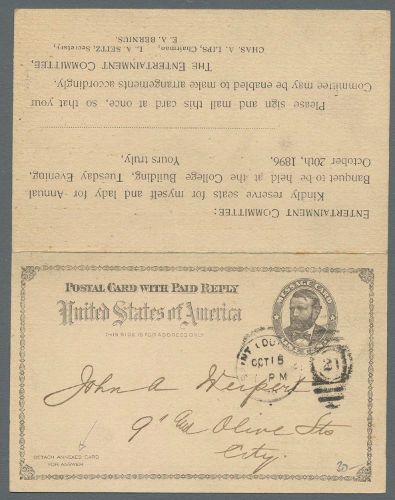 ENTERTAINMENT COMMITTEE:
Kindly reserve seats for lady and myself for Annual
Banquet to be held at the College Building, Tuesday Evening,
October 20th, 1896.
Yours truly,
Please sign and mail this card at once, so that your
Committee may be enabled to make arrangements accordingly.
THE ENTERTAINMENT COMMITTEE,
CHAS. A. LIPS, Chairman, L. A. SEITZ, Secretary,
E. A. BERNIUS.
POSTAL CARD WITH PAID REPLY
United States of America
THIS SIDE IS FOR ADDRESS ONLY
MESSAGE CARD
ONE CENT
OCT 15
PM
21
John A Weipert
9" And Olive Sts
City.
DETACH ANNEXED CARD
FOR ANSWER
20-